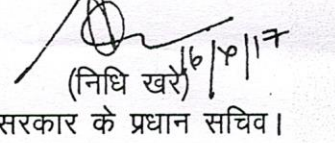 16/4/17
(निधि खरे)
सरकार के प्रधान सचिव।